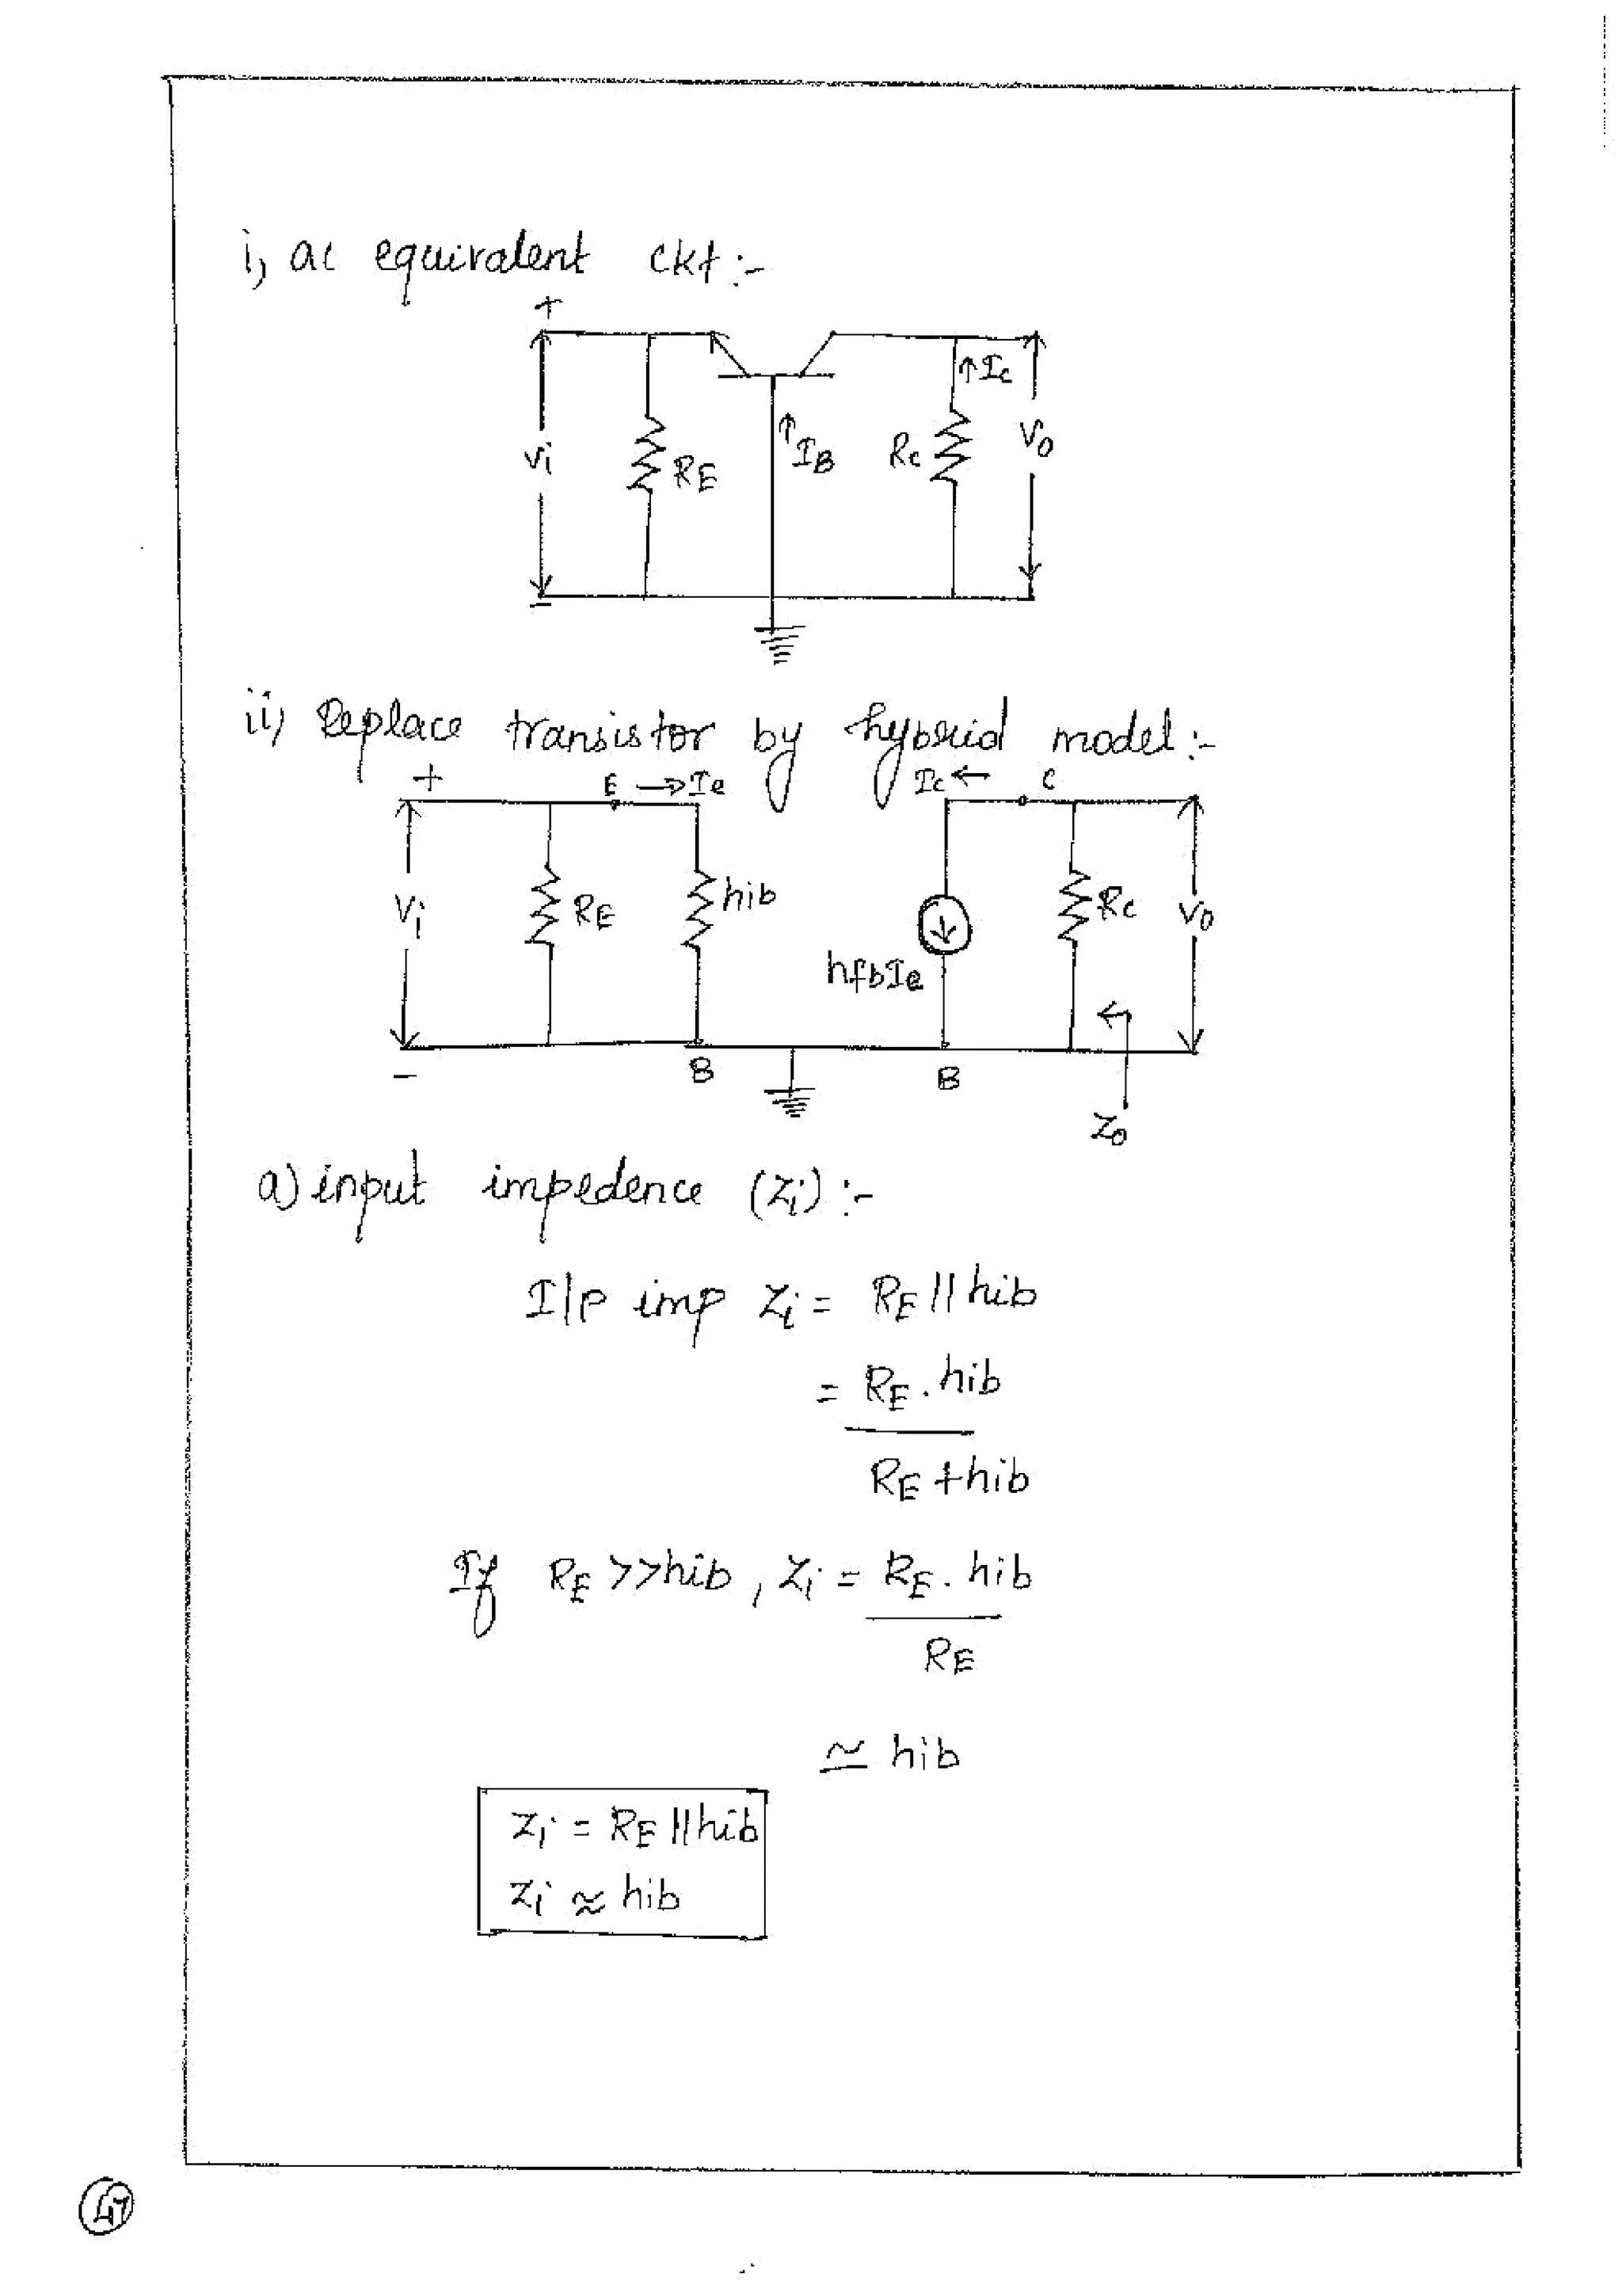 i, ac equivalent ckt :-
+
↑Ic
Vi
RE
↑IB
Rc
Vo
-
ii, Replace transistor by hybrid model :-
+
E →Ie
Ic←
C
Vi
RE
hib
hfbIe
Rc
Vo
-
B
B
Zo
a) input impedence (Zi) :-
I/P imp Zi = RE || hib
= RE . hib
RE + hib
If RE >> hib , Zi = RE . hib
RE
≃ hib
Zi = RE || hib
Zi ≈ hib